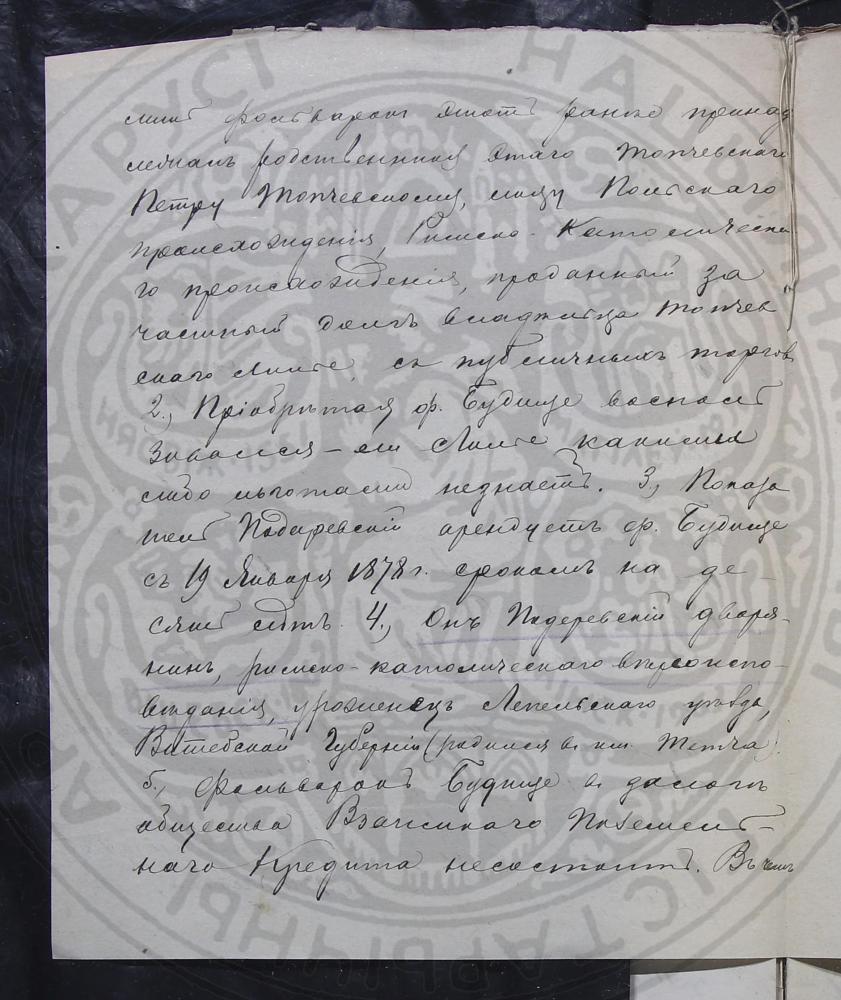 фольварокъ этотъ ранѣе принад
лежалъ родственнику этаго Топчевскаго
Петру Топчевскому, лицу Польскаго
происхожденія, Римско-Католическа
го происхожденія, проданный за
частный долгъ Топчев
скаго съ публичныхъ торгов
2., Пріобрѣтая ф. Будище воспол
зовался-ли какими
либо льготами незнаетъ. 3., Показа
тель Подеревскій арендуетъ ф. Будище
съ 19 Января 1878 г. срокомъ на де-
сять лѣтъ. 4., Онъ Подеревскій дворя-
нинъ, римско-католическаго вѣроиспо-
вѣданія, уроженецъ Лепельскаго уѣзда,
Витебской Губерніи (родился в им. Тетча).
5., Фольварокъ Будище в залогѣ
общества Взаимнаго Поземель-
наго Кредита несостоитъ. Въ чемъ